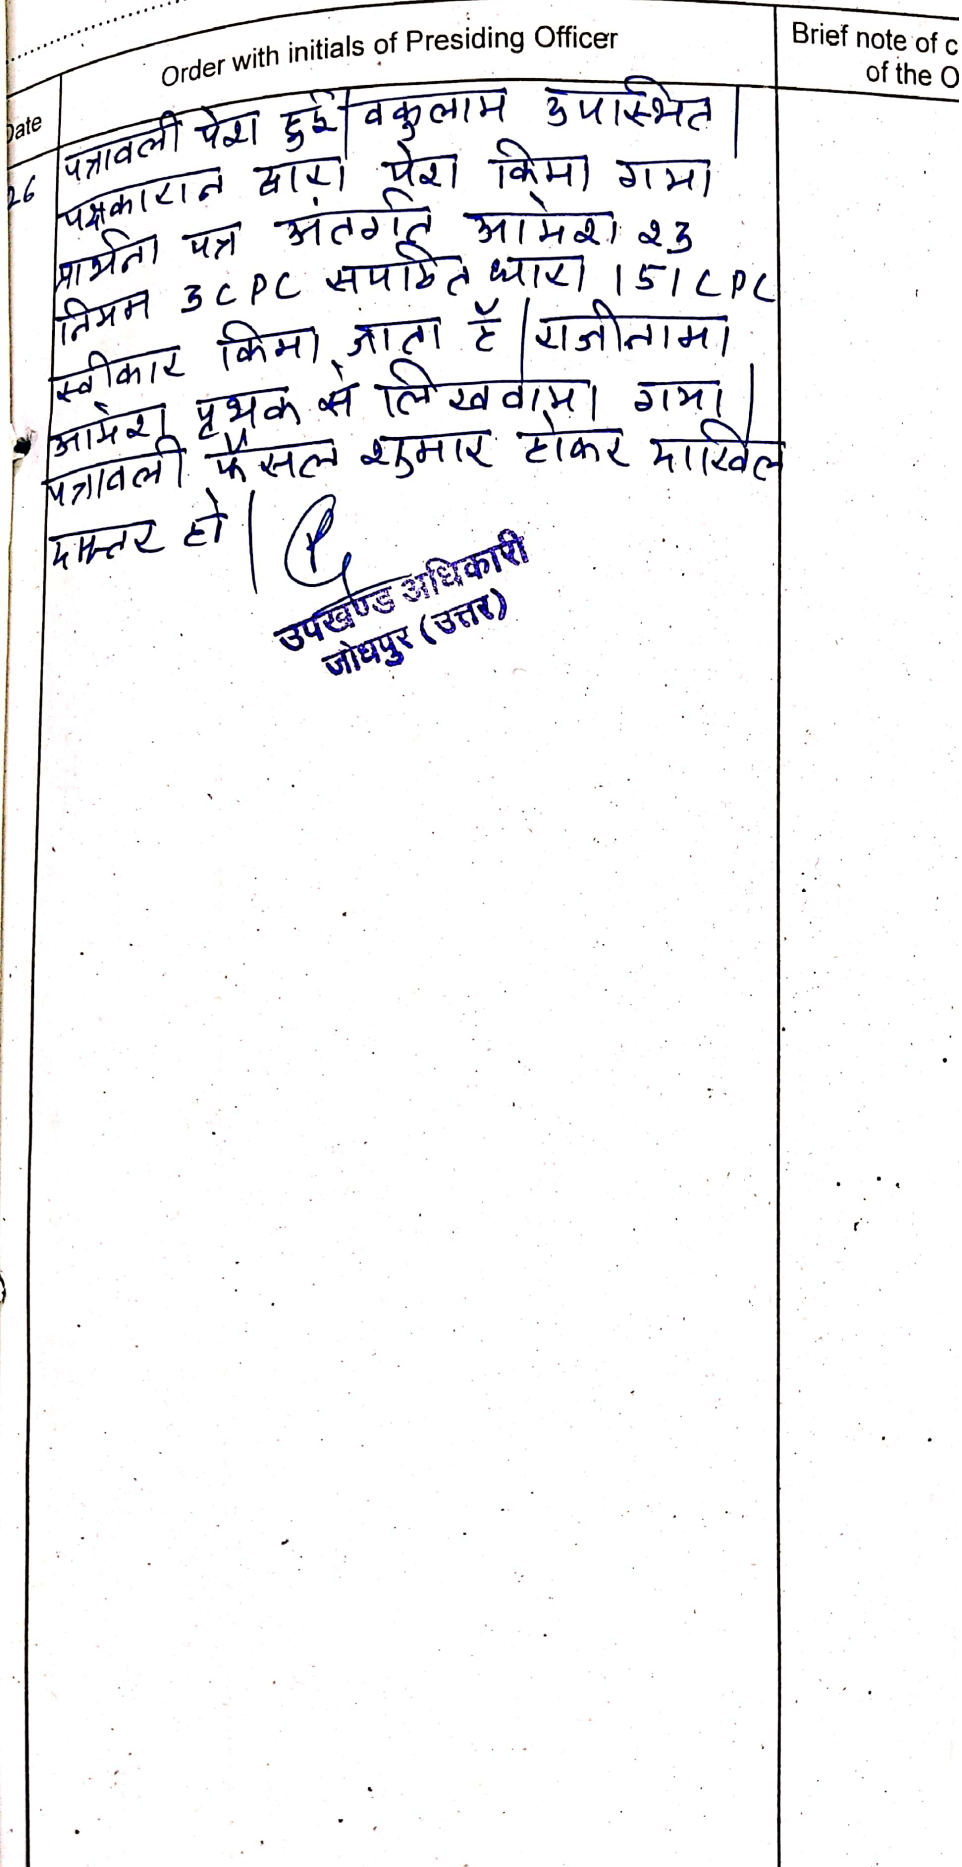 Order with initials of Presiding Officer
Brief note of c
of the O
Date
26
पत्रावली पेश हुई। वकुलाय उपस्थित।
पक्षकारान द्वारा पेश किया गया
प्रार्थना पत्र अंतर्गत आदेश 23
नियम 3 CPC सपठित धारा 151 CPC
स्वीकार किया जाता है। राजीनामा
आदेश पृथक से लिखवाया गया।
पत्रावली फैसल शुमार होकर दाखिल
दफ्तर हो।
उपखण्ड अधिकारी
जोधपुर (उत्तर)